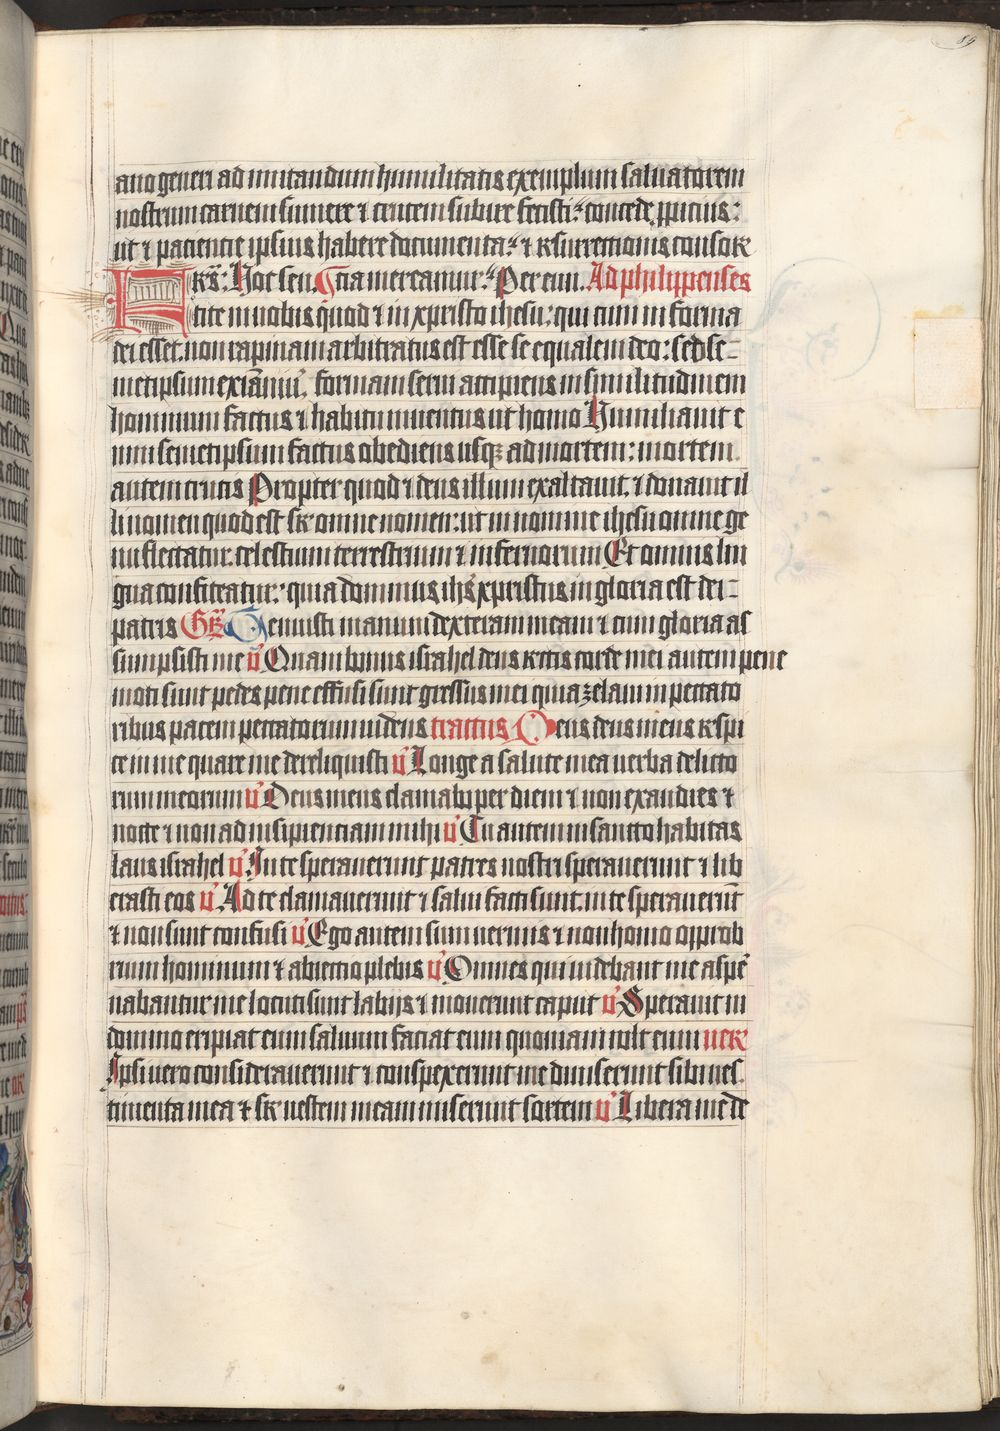 89
ano generi ad imitandum humilitatis exemplum saluatorem
nostrum carnem sumere ⁊ crucem subire fecisti: concede ꝓpicius:
ut ⁊ paciencie ipsius habere documenta: ⁊ resurrectionis consor
tes: Hoc sen Ctia mereamur: Per eun. Ad philippenses
Fratres: Hoc
tite in uobis quod ⁊ in xpristo ihesu: qui cum in forma
dei esset. non rapinam arbitratus est esse se equalem deo: sed se-
metipsum exinaniuit, formam serui accipiens in similitudinem
hominum factus ⁊ habitu inuentus ut homo Humiliauit e
nim semetipsum factus obediens usqꝫ ad mortem: mortem
autem crucis Propter quod ⁊ deus illum exaltauit. ⁊ donauit il
li nomen quod est sr omne nomen: ut in nomine ihesu omne ge
nu flectatur. celestium terrestrium ⁊ infernorum Et omnis lin
gua confiteatur: quia dominus ihs xpristus in gloria est dei-
patris Gr Tenuisti manum dexteram meam ⁊ cum gloria as
sumpsisti me v̓ Quam bonus israhel deus rectis corde mei autem pene
moti sunt pedes pene effusi sunt gressus mei quia zelaui in peccato
ribus pacem peccatorum uidens tractus Deus deus meus respi
ce in me quare me dereliquisti v̓ Longe a salute mea uerba delicto
rum meorum v̓ Deus meus clamabo per diem ⁊ non exaudies ⁊
nocte ⁊ non ad insipienciam mihi v̓ Tu autem in sancto habitas
laus israhel v̓ In te sperauerunt patres nostri sperauerunt ⁊ lib
erasti eos v̓ Ad te clamauerunt ⁊ salui facti sunt. in te sperauerūt
⁊ non sunt confusi v̓ Ego autem sum uermis ⁊ non homo opprob
rium hominum ⁊ abiectio plebis v̓ Omnes qui uidebant me aspe
nabantur me locuti sunt labijs ⁊ mouerunt caput v̓ Sperauit in
domino eripiat eum saluum faciat eum quoniam uolt eum uer
Ipsi uero considerauerunt ⁊ conspexerunt me diuiserunt sibi ues
timenta mea ⁊ sr uestem meam miserunt sortem v̓ Libera me de